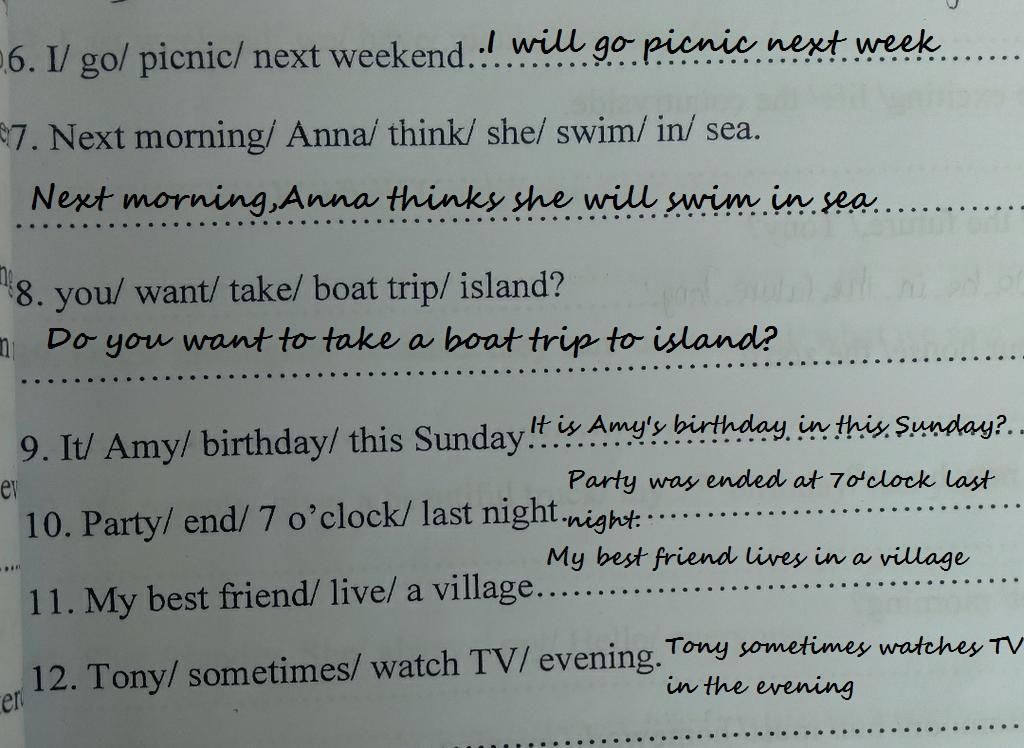 6. I/ go/ picnic/ next weekend..I will go picnic next week
7. Next morning/ Anna/ think/ she/ swim/ in/ sea.
Next morning,Anna thinks she will swim in sea
8. you/ want/ take/ boat trip/ island?
Do you want to take a boat trip to island?
9. It/ Amy/ birthday/ this Sunday It is Amy's birthday in this Sunday?
10. Party/ end/ 7 o'clock/ last night. Party was ended at 7o'clock last
night.
11. My best friend/ live/ a village My best friend lives in a village
12. Tony/ sometimes/ watch TV/ evening. Tony sometimes watches TV
in the evening